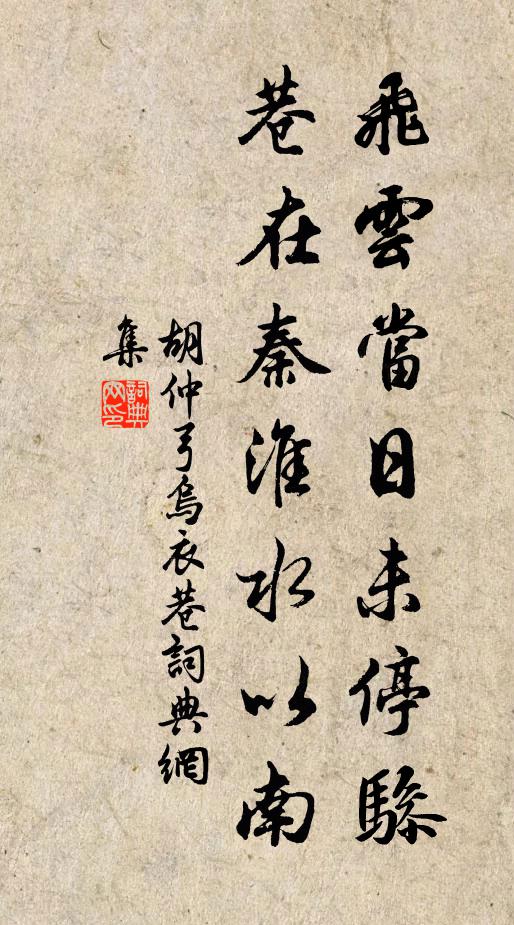 飛雲當日未停驂
巷在秦淮水以南
胡仲弓烏衣巷詞典網
集
詞典
网印